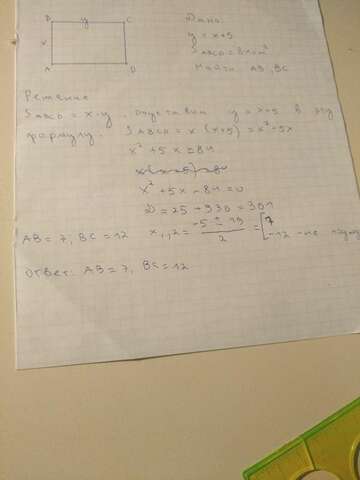 B y C
x
A D
Дано:
y = x+5
SABCD = 84см²
Найти AB, BC
Решение
SABCD = x·y. подставим y = x+5 в эту
формулу. SABCD = x(x+5) = x²+5x
x² + 5x = 84
x(x+5)=84
x² + 5x - 84 = 0
D = 25 + 336 = 361
AB = 7, BC = 12 x1,2 = -5 ± 19 / 2 = [7 -12 - не
Ответ: AB = 7, BC = 12